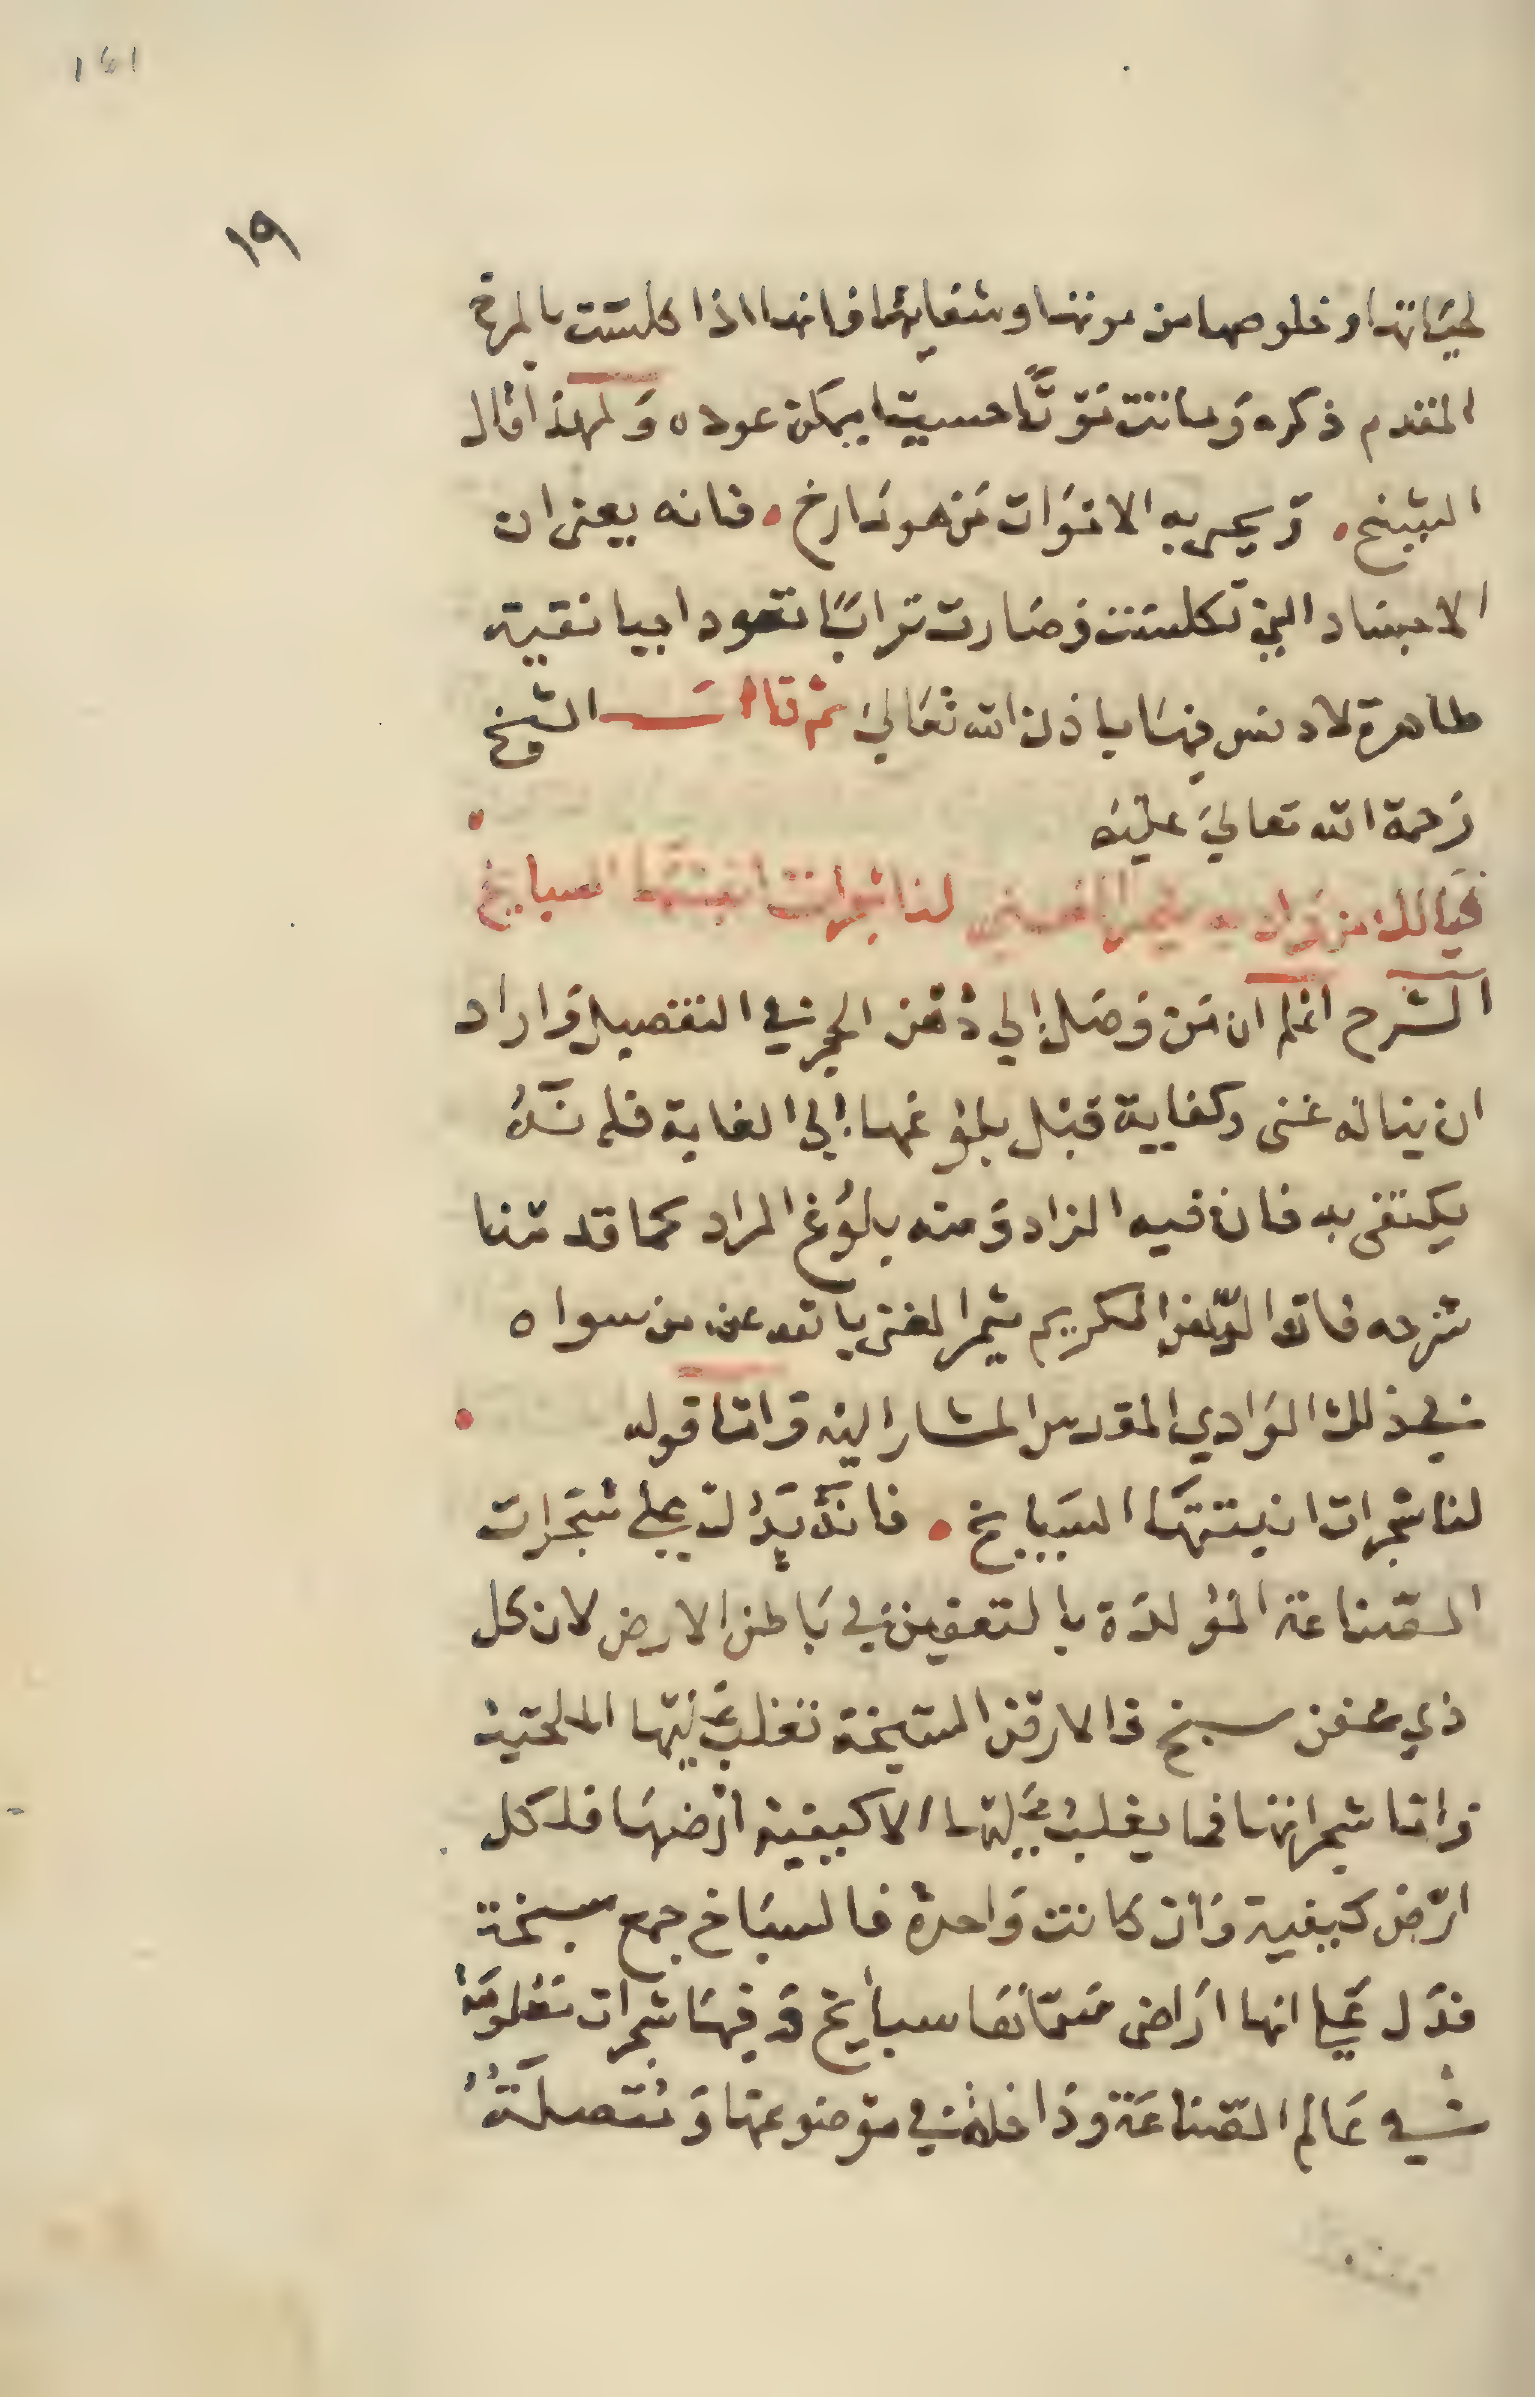 ١٤١
١٩
لحياتها وخلوصها من موتها وشفايها فانها اذا كلست بالمزج
المتقدم ذكره وماتت موتًا حسيا يمكن عوده ولهذا قال
الشيخ . ويحيى به الاموات من هو نارخ . فانه يعنى ان
الاجساد التي تكلست وصارت ترابًا تعود احيا نقية
طاهرة لا دنس فيها باذن الله تعالى ثم قال الشيخ
رحمة الله تعالى عليه
فيا لك من واد به لنا شجرات انبتتها السبايخ
الشرح اعلم ان من وصل الي دهن الحجر في التفصيل واراد
ان يناله غنى وكفاية قبل بلوغها الي الغاية فلم نره
يكتفى به فان فيه المراد ومنه بلوغ المراد كما قدمنا
شرحه فاذا الدهن الكريم شجر الغنى بالله عن من سواه
في ذلك الوادي المقدس المشار اليه واما قوله
لنا شجرات انبتتها السبايخ . فانه يدلك على شجرات
الصناعة المولدة بالتعفين في باطن الارض لان كل
ذي عفن سبخ فالارض السبخة تغلب عليها الملحية
واما شجراتها فما يغلب عليها الا كيفية ارضها فلكل
ارض كيفية وان كانت واحدة فالسباخ جمع سبخة
فدل على انها اراضى مسماتها سبايخ وفيها شجرات معلومة
في عالم الصناعة وداخلة في موضوعها ومتصلة